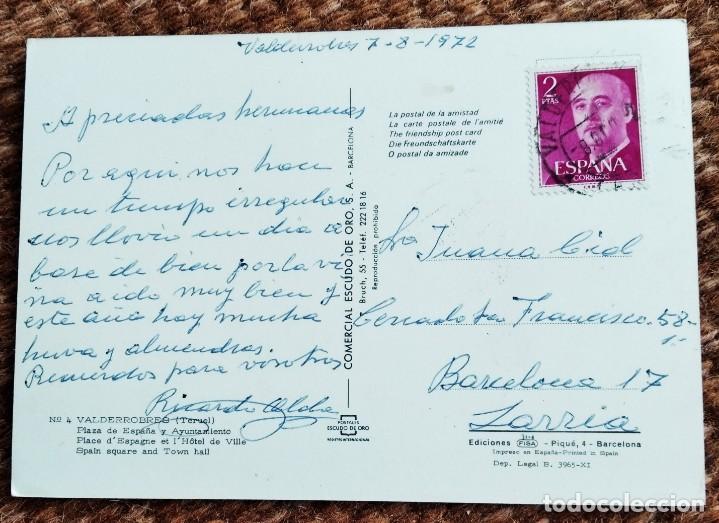 Valderrobres 7-8-1972
Apreciadas hermanas
Por aqui nos hace
un tiempo irregular
nos llovio un dia a
base de bien por la vi
ña a ido muy bien y
este año hay mucha
huva y almendras.
Recuerdos para vosotros
Ricardo
Nº 4 VALDERROBRES (Teruel)
Plaza de España y Ayuntamiento
Place d'Espagne et l'Hôtel de Ville
Spain square and Town hall
COMERCIAL ESCUDO DE ORO, S. A. - BARCELONA
Bruch, 55 - Teléf. 222 18 16
Reproducción prohibida
POSTALES
ESCUDO DE ORO
La postal de la amistad
La carte postale de l'amitié
The friendship post card
Die Freundschaftskarte
O postal da amizade
2
PTAS
ESPAÑA
CORREOS
Sra Juana Cid
San Francisco. 58-
Barcelona 17
Sarria
Ediciones FISA - Piqué, 4 - Barcelona
Impreso en España-Printed in Spain
Dep. Legal B. 3965-XI
todocoleccion